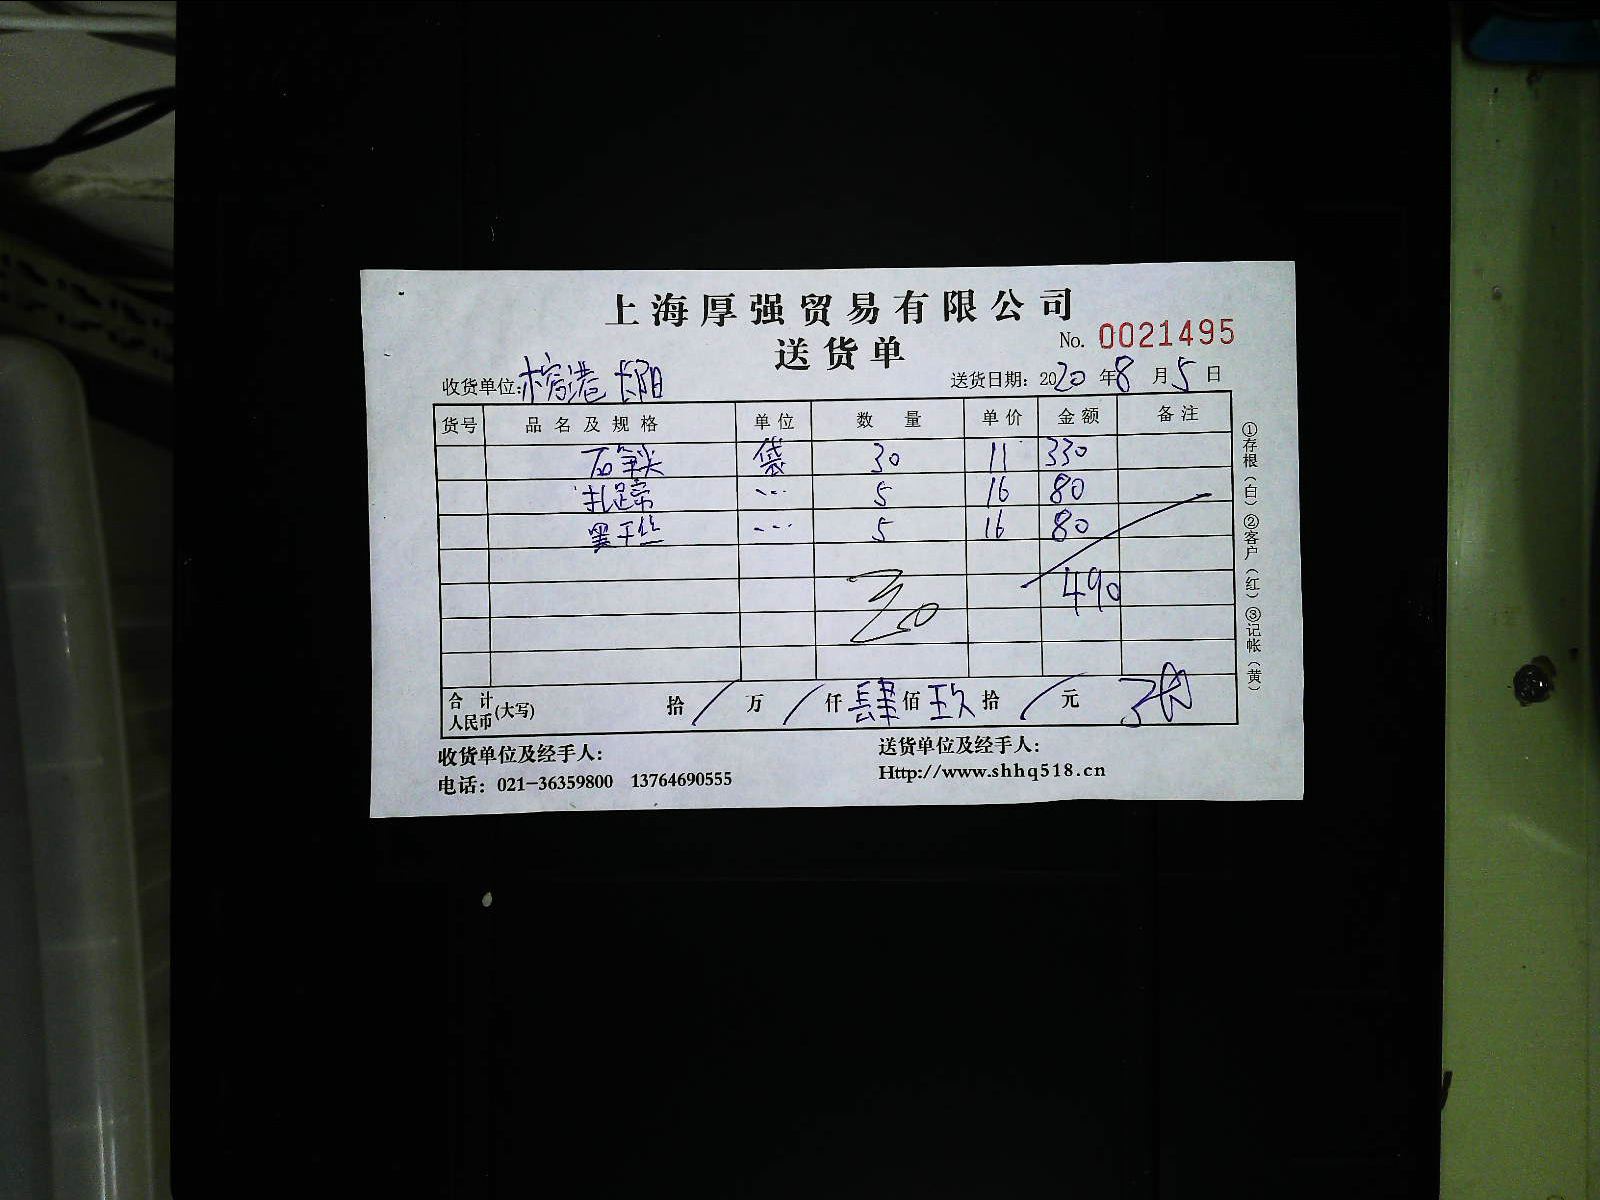 上海厚强贸易有限公司
送货单
No. 0021495
收货单位: 榕港 长阳
送货日期: 2020 年 8 月 5 日
货号 品名及规格 单位 数量 单价 金额 备注
袋 30 11 330
扎蹄 5 16 80
黑干丝 5 16 80
490
合计人民币(大写) 拾 / 万 / 仟 肆 佰 玖 拾 / 元
收货单位及经手人:
送货单位及经手人:
电话: 021-36359800 13764690555
Http://www.shhq518.cn
①存根(白) ②客户(红) ③记帐(黄)